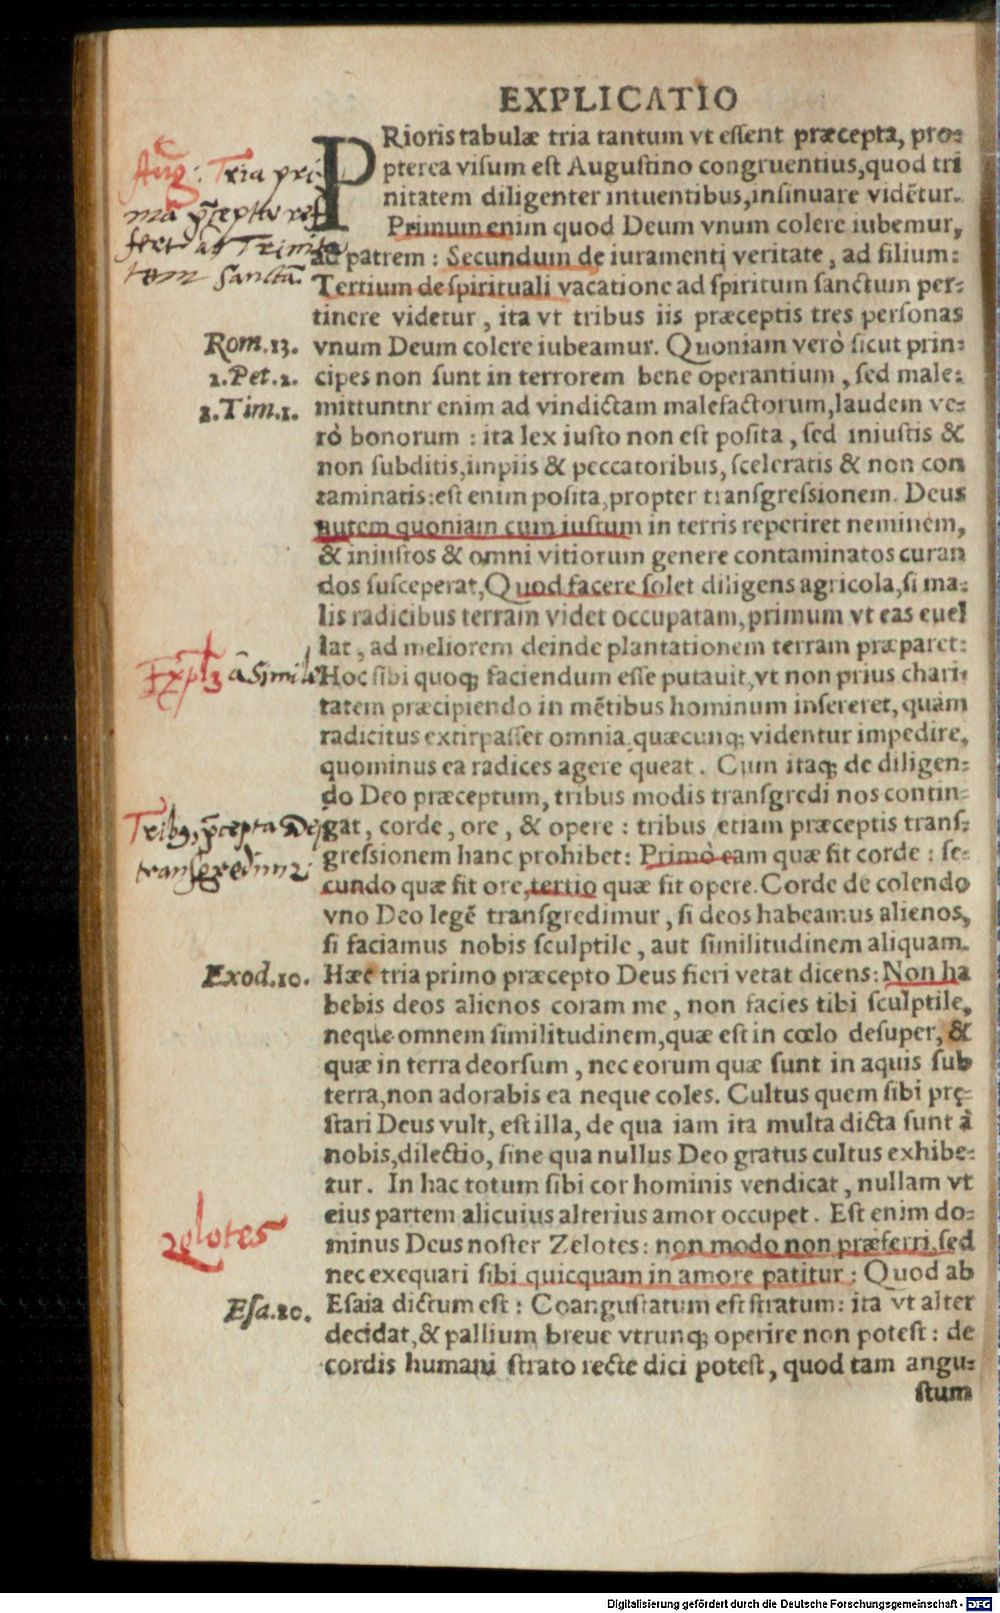 EXPLICATIO
PRioris tabulæ tria tantum vt essent præcepta, pro-
pterea visum est Augustino congruentius, quod tri
nitatem diligenter intuentibus, insinuare vidẽtur.
Primum enim quod Deum vnum colere iubemur,
ad patrem : Secundum de iuramenti veritate, ad filium:
Tertium de spirituali vacatione ad spiritum sanctum per-
tinere videtur, ita vt tribus iis præceptis tres personas
vnum Deum colere iubeamur. Quoniam verò sicut prin-
cipes non sunt in terrorem bene operantium, sed male:
mittuntnr enim ad vindictam malefactorum, laudem ve-
rò bonorum : ita lex iusto non est posita, sed iniustis &
non subditis, impiis & peccatoribus, sceleratis & non con
taminatis: est enim posita, propter transgressionem. Deus
autem quoniam cum iustum in terris reperiret neminem,
& iniustos & omni vitiorum genere contaminatos curan
dos susceperat, Quod facere solet diligens agricola, si ma-
lis radicibus terram videt occupatam, primum vt eas euel
lat, ad meliorem deinde plantationem terram præparet:
Hoc sibi quoq; faciendum esse putauit, vt non prius chari-
tatem præcipiendo in mẽtibus hominum insereret, quàm
radicitus extirpasset omnia, quæcunq; videntur impedire,
quominus ea radices agere queat. Cum itaq; de diligen-
do Deo præceptum, tribus modis transgredi nos contin-
gat, corde, ore, & opere : tribus etiam præceptis trans-
gressionem hanc prohibet: Primò eam quæ fit corde : se-
cundo quæ fit ore, tertio quæ fit opere. Corde de colendo
vno Deo legẽ transgredimur, si deos habeamus alienos,
si faciamus nobis sculptile, aut similitudinem aliquam.
Hæc tria primo præcepto Deus fieri vetat dicens: Non ha
bebis deos alienos coram me, non facies tibi sculptile,
neque omnem similitudinem, quæ est in cœlo desuper, &
quæ in terra deorsum, nec eorum quæ sunt in aquis sub
terra, non adorabis ea neque coles. Cultus quem sibi prę-
stari Deus vult, est illa, de qua iam ita multa dicta sunt à
nobis, dilectio, sine qua nullus Deo gratus cultus exhibe-
tur. In hac totum sibi cor hominis vendicat, nullam vt
eius partem alicuius alterius amor occupet. Est enim do-
minus Deus noster Zelotes: non modo non præferri, sed
nec exequari sibi quicquam in amore patitur : Quod ab
Esaia dictum est : Coangustatum est stratum: ita vt alter
decidat, & pallium breue vtrunq; operire non potest : de
cordis humani strato recte dici potest, quod tam angu-
stum
Aug: Tria pri
mã p̃cepta ref
fert ad Trinita
tem Sanctã
Rom.13.
1.Pet.2.
1.Tim.1.
Expl; à Simili
Trib9 p̃cepta Dei
transgredim2
Exod.20.
zelotes
Esa.20.
Digitalisierung gefördert durch die Deutsche Forschungsgemeinschaft - DFG